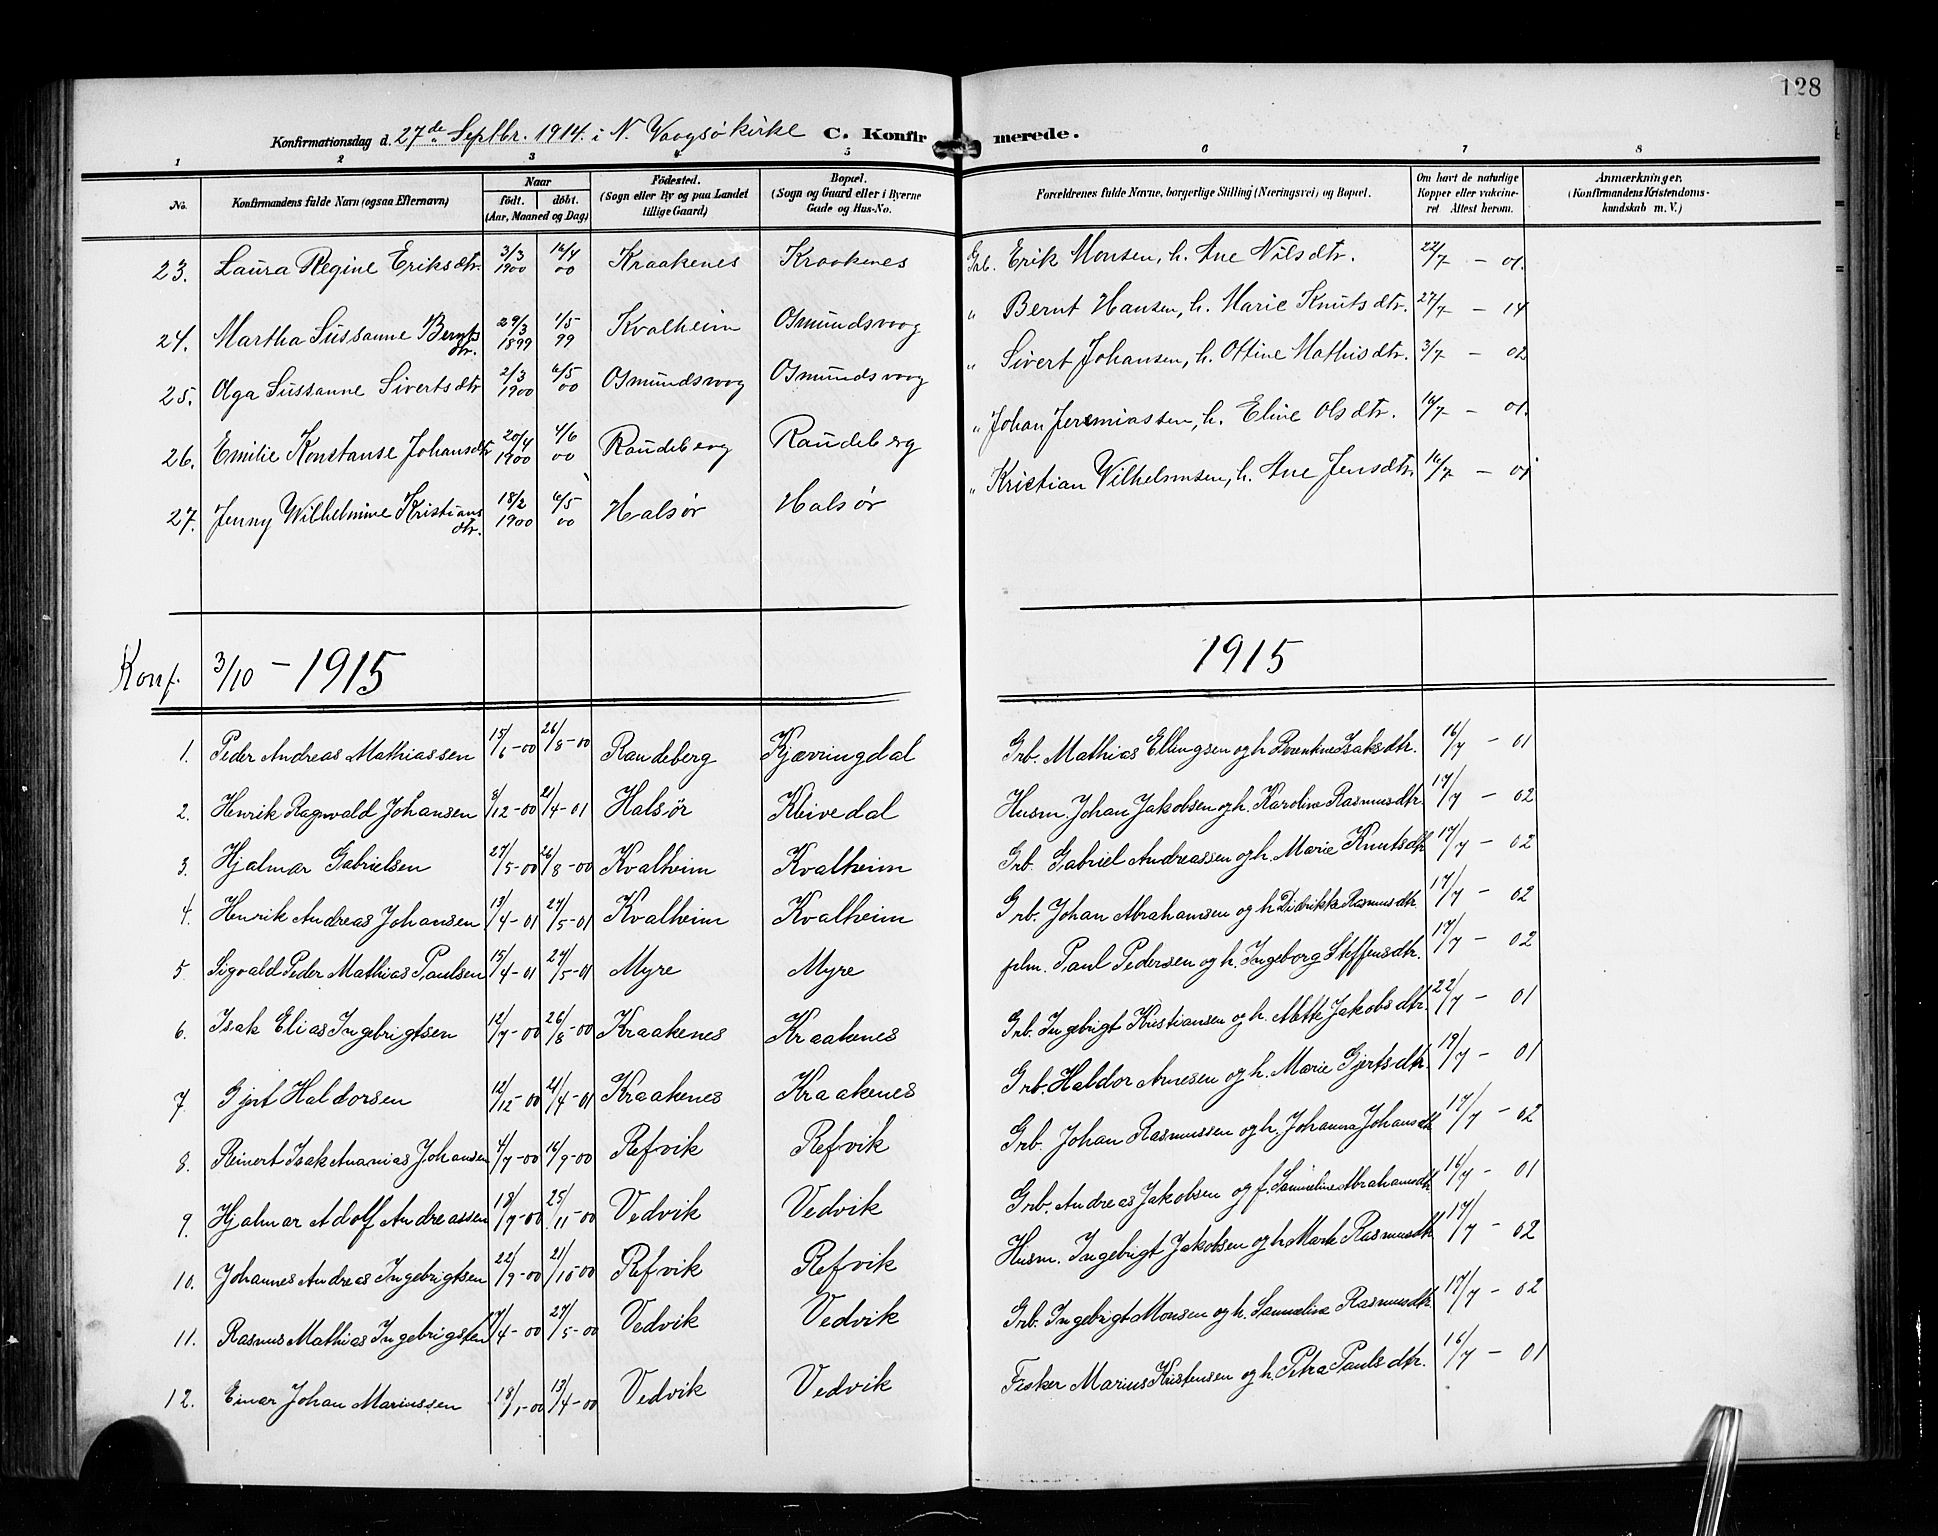 128
Konfirmationsdag d. 27de Septbr. 1914 i N. Vaagsö kirke C. Konfirmerede.
1 2 3 4 5 6 7 8
No. Konfirmandens fulde Navn (ogsaa Efternavn) Naar födt. döbt. (Aar, Maaned og Dag) Födested. (Sogn eller By og paa Landet tillige Gaard) Bopæl. (Sogn og Gaard eller i Byerne Gade og Hus-No. Forældrenes fulde Navne, borgerlige Stilling (Næringsvei) og Bopæl. Om havt de naturlige Kopper eller vakcineret Attest herom. Anmærkninger. (Konfirmandens Kristendomskundskab m. V.)
23. Laura Regine Eriksdtr. 3/3 1900 16/4 00 Kraakenes Kraakenes Grb. Erik Monsen, h. Ane Nilsdtr. 22/7 - 01.
24. Martha Sussanne Berntsdtr. 29/3 1899 1/5 99 Kvalheim Osmundsvaag " Bernt Hansen, h. Marie Knutsdtr. 27/7 - 14
25. Olga Sussanne Sivertsdtr 2/3 1900 6/5 00 Osmundsvaag Osmundsvaag " Sivert Johansen, h. Ottine Mathisdtr. 3/7 - 02
26. Emilie Konstanse Johansdtr 20/4 1900 4/6 00 Raudeberg Raudeberg " Johan Jeremiassen, h. Eline Olsdtr. 16/7 - 01.
27. Jenny Wilhelmine Kristiansdtr. 18/2 1900 6/5 00 Halsør Halsør " Kristian Wilhelmsen, h. Ane Jensdtr. 16/7 - 01
Konf. 3/10 - 1915 1915
1. Peder Andreas Mathiassen 15/6-00 26/8-00 Raudeberg Kjævringdal Grb. Mathias Ellingsen og h. Isaksdtr. 16/7 - 01
2. Henrik Ragnvald Johansen 3/12-00 21/4-01 Halsør Kleivedal Husm. Johan Jakobsen og h. Karolina Rasmusdtr. 17/7 - 02
3. Hjalmar Gabrielsen 27/5-00 26/8-00 Kvalheim Kvalheim Grb. Gabriel Andreassen og h. Marie Knutsdtr 17/7 - 02
4. Henrik Andreas Johansen 13/4-01 27/5-01 Kvalheim Kvalheim Grb. Johan Abrahamsen og h Didrikke Rasmusdtr. 17/7 - 02
5 Sigvald Peder Mathias Paulsen 15/4-01 27/5-01 Myre Myre plm. Paul Pedersen og h. Ingeborg Steffensdtr. 17/7 - 02
6. Isak Elias Ingebrigtsen 12/7-00 26/8-00 Kraakenes Kraakenes Grb. Ingebrigt Kristiansen og h. Mette Jakobsdtr. 22/7 - 01
7 Gjert Haldorsen 12/12-00 21/4-01 Kraakenes Kraakenes Grb. Haldor Arnesen og h. Marie Gjertsdtr. 19/7 - 01
8. Reinert Isak Ananias Johansen 4/7-00 16/9-00 Refvik Refvik Grb. Johan Rasmussen og h. Johanna Johansdtr 17/7 - 02
9. Hjalmar Adolf Andreassen 18/9-00 25/11-00 Vedvik Vedvik Grb. Andreas Jakobsen og f. Samueline Abrahamsdtr 16/7 - 01
10. Johannes Andreas Ingebrigtsen 22/9-00 21/10-00 Refvik Refvik Husm. Ingebrigt Jakobsen og h. Rasmusdtr 17/7 - 02
11. Rasmus Mathias Ingebrigsten 17/4-00 27/5-00 Vedvik Vedvik Grb. Ingebrigt Monsen og h. Samueline Rasmusdtr. 17/7 - 02
12. Einar Johan Mariussen 18/1-00 13/4-00 Vedvik Vedvik Fisker Marius Kristensen og h. Petra Paulsdtr. 16/7 - 01